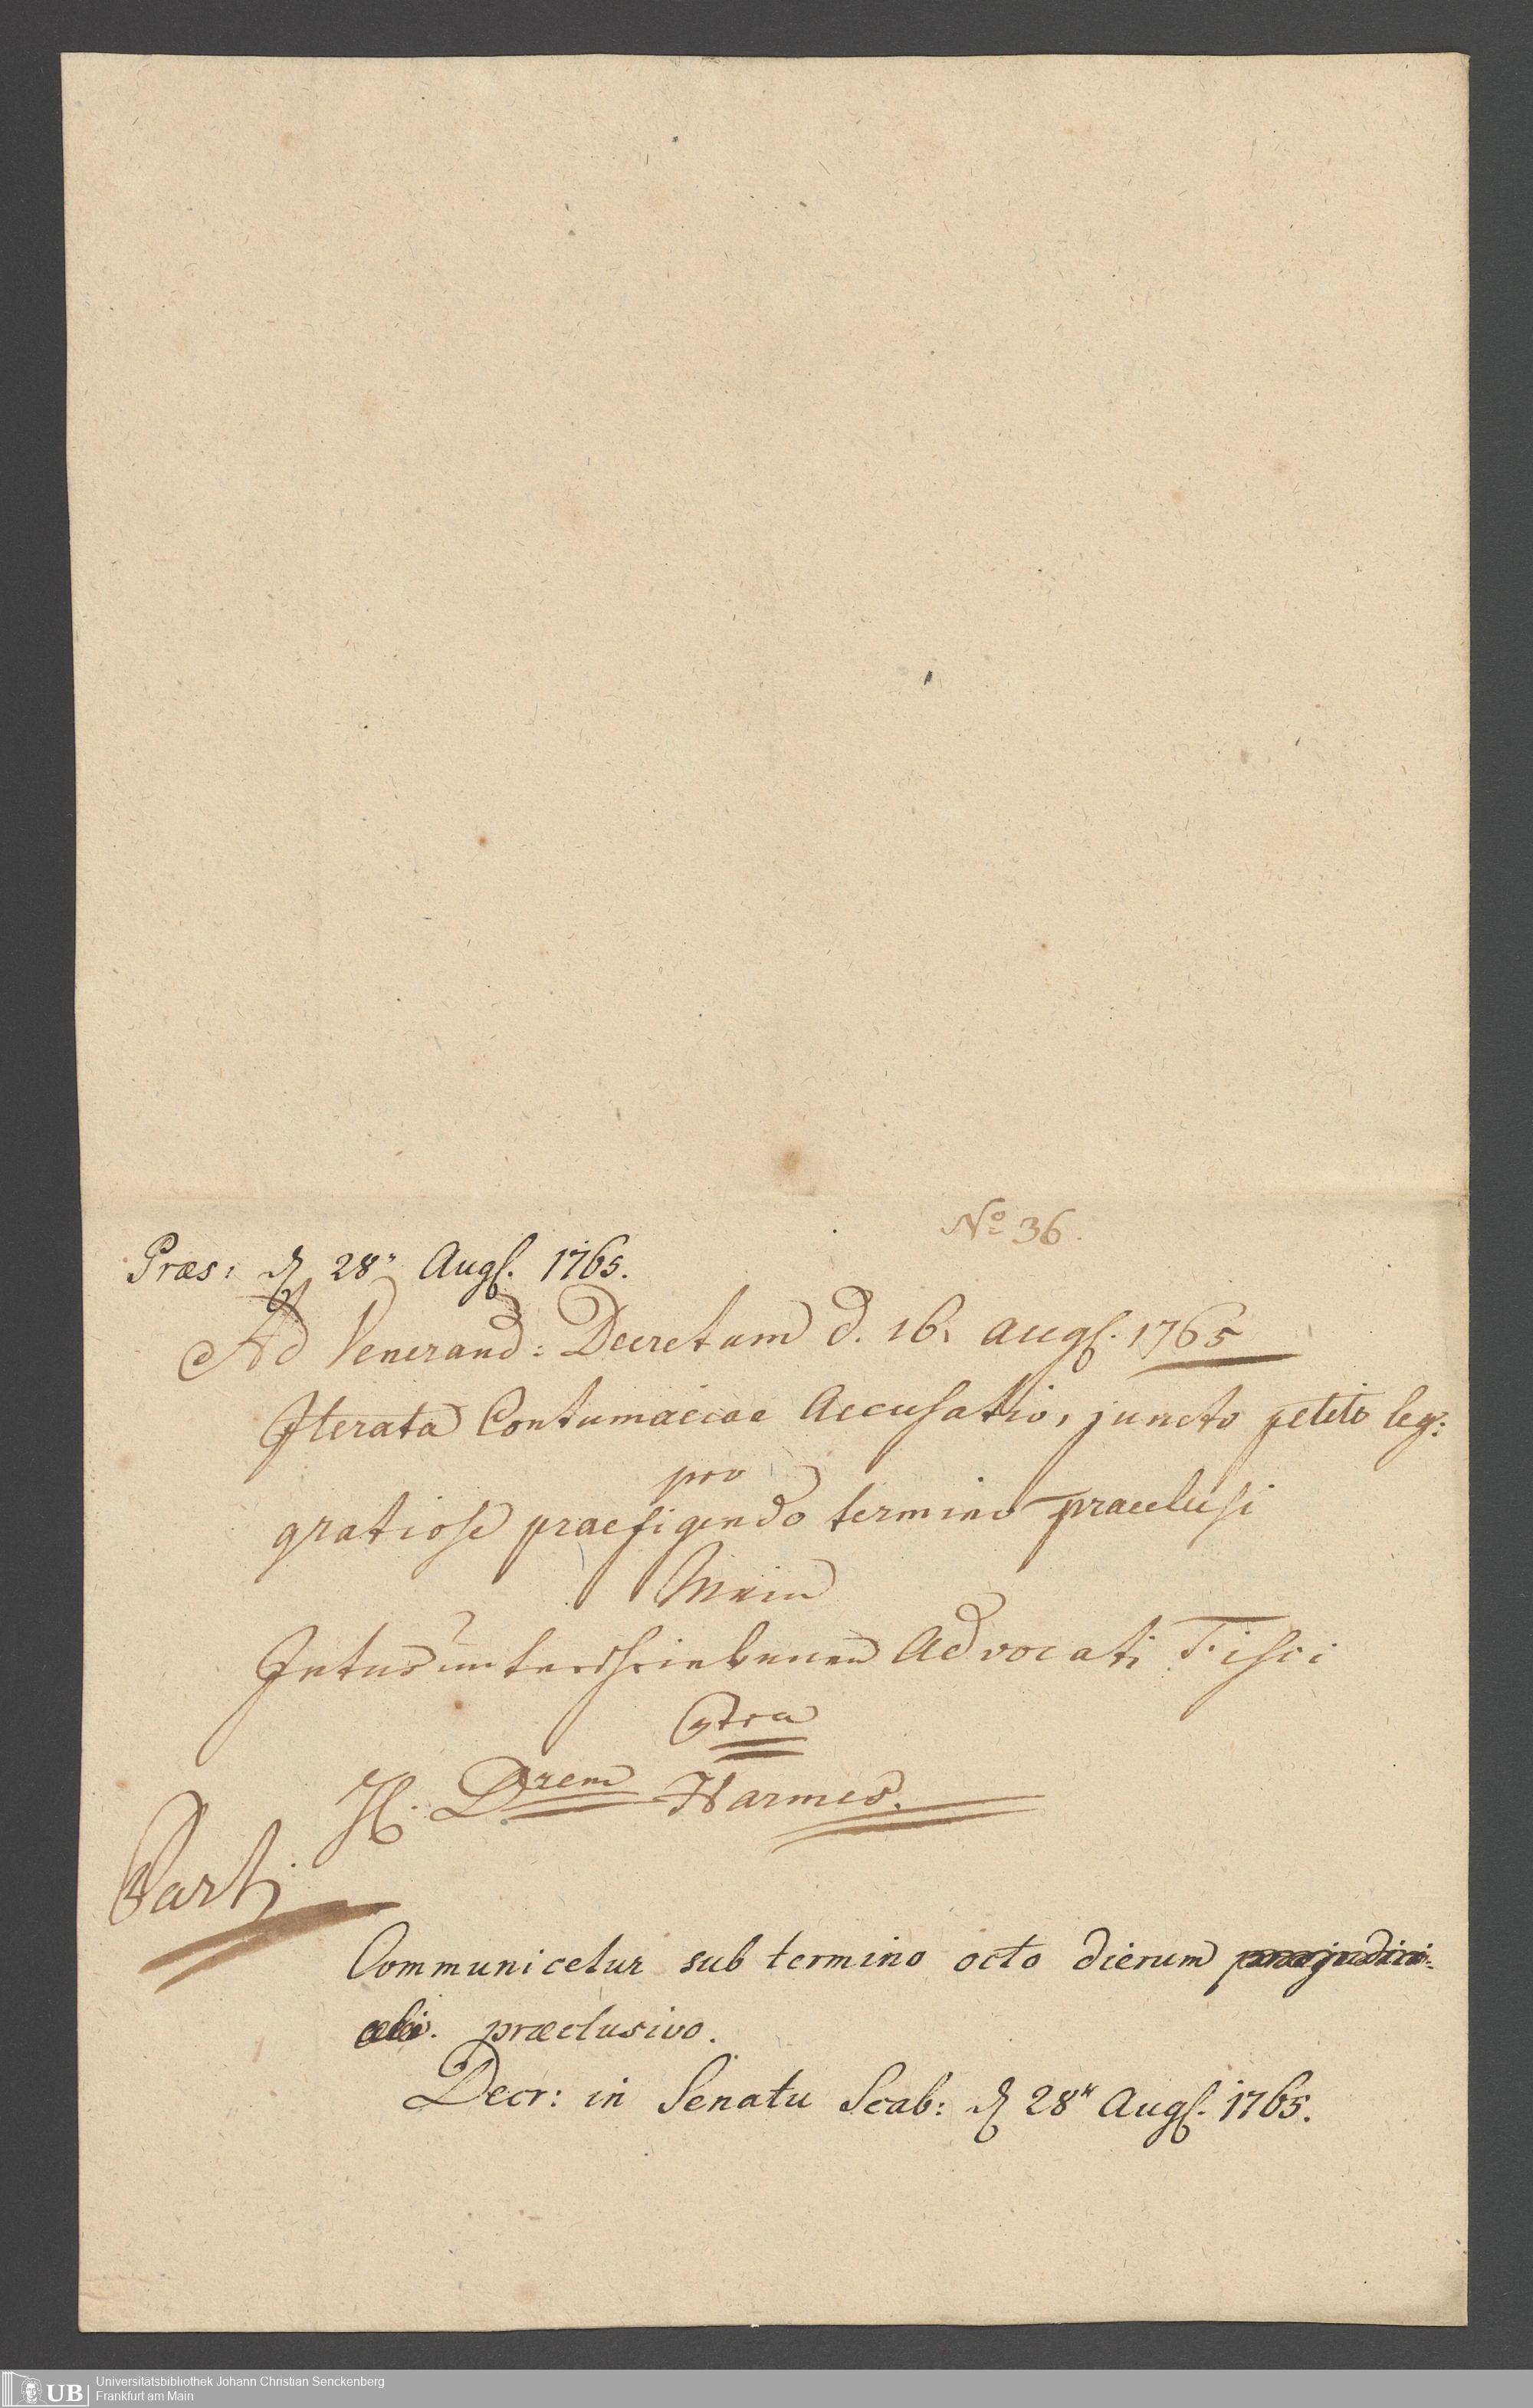 No 36.
Præs: d 28" Augs. 1765.
Ad Venerand: Decretum d. 16. Augs. 1765
Iterata Contumaciae Accusatio, juncto petito leg:
pro
gratiose praefigendo termino praeclusi
Mein
Intus unterschriebenen Advocati Fisci
Ctra
H. Drem Harmes.
Parti
Communicetur sub termino octo dierum praejudici-
ali. præclusivo.
Decr: in Senatu Scab: d 28" Augs. 1765.
UB Universitätsbibliothek Johann Christian Senckenberg
Frankfurt am Main